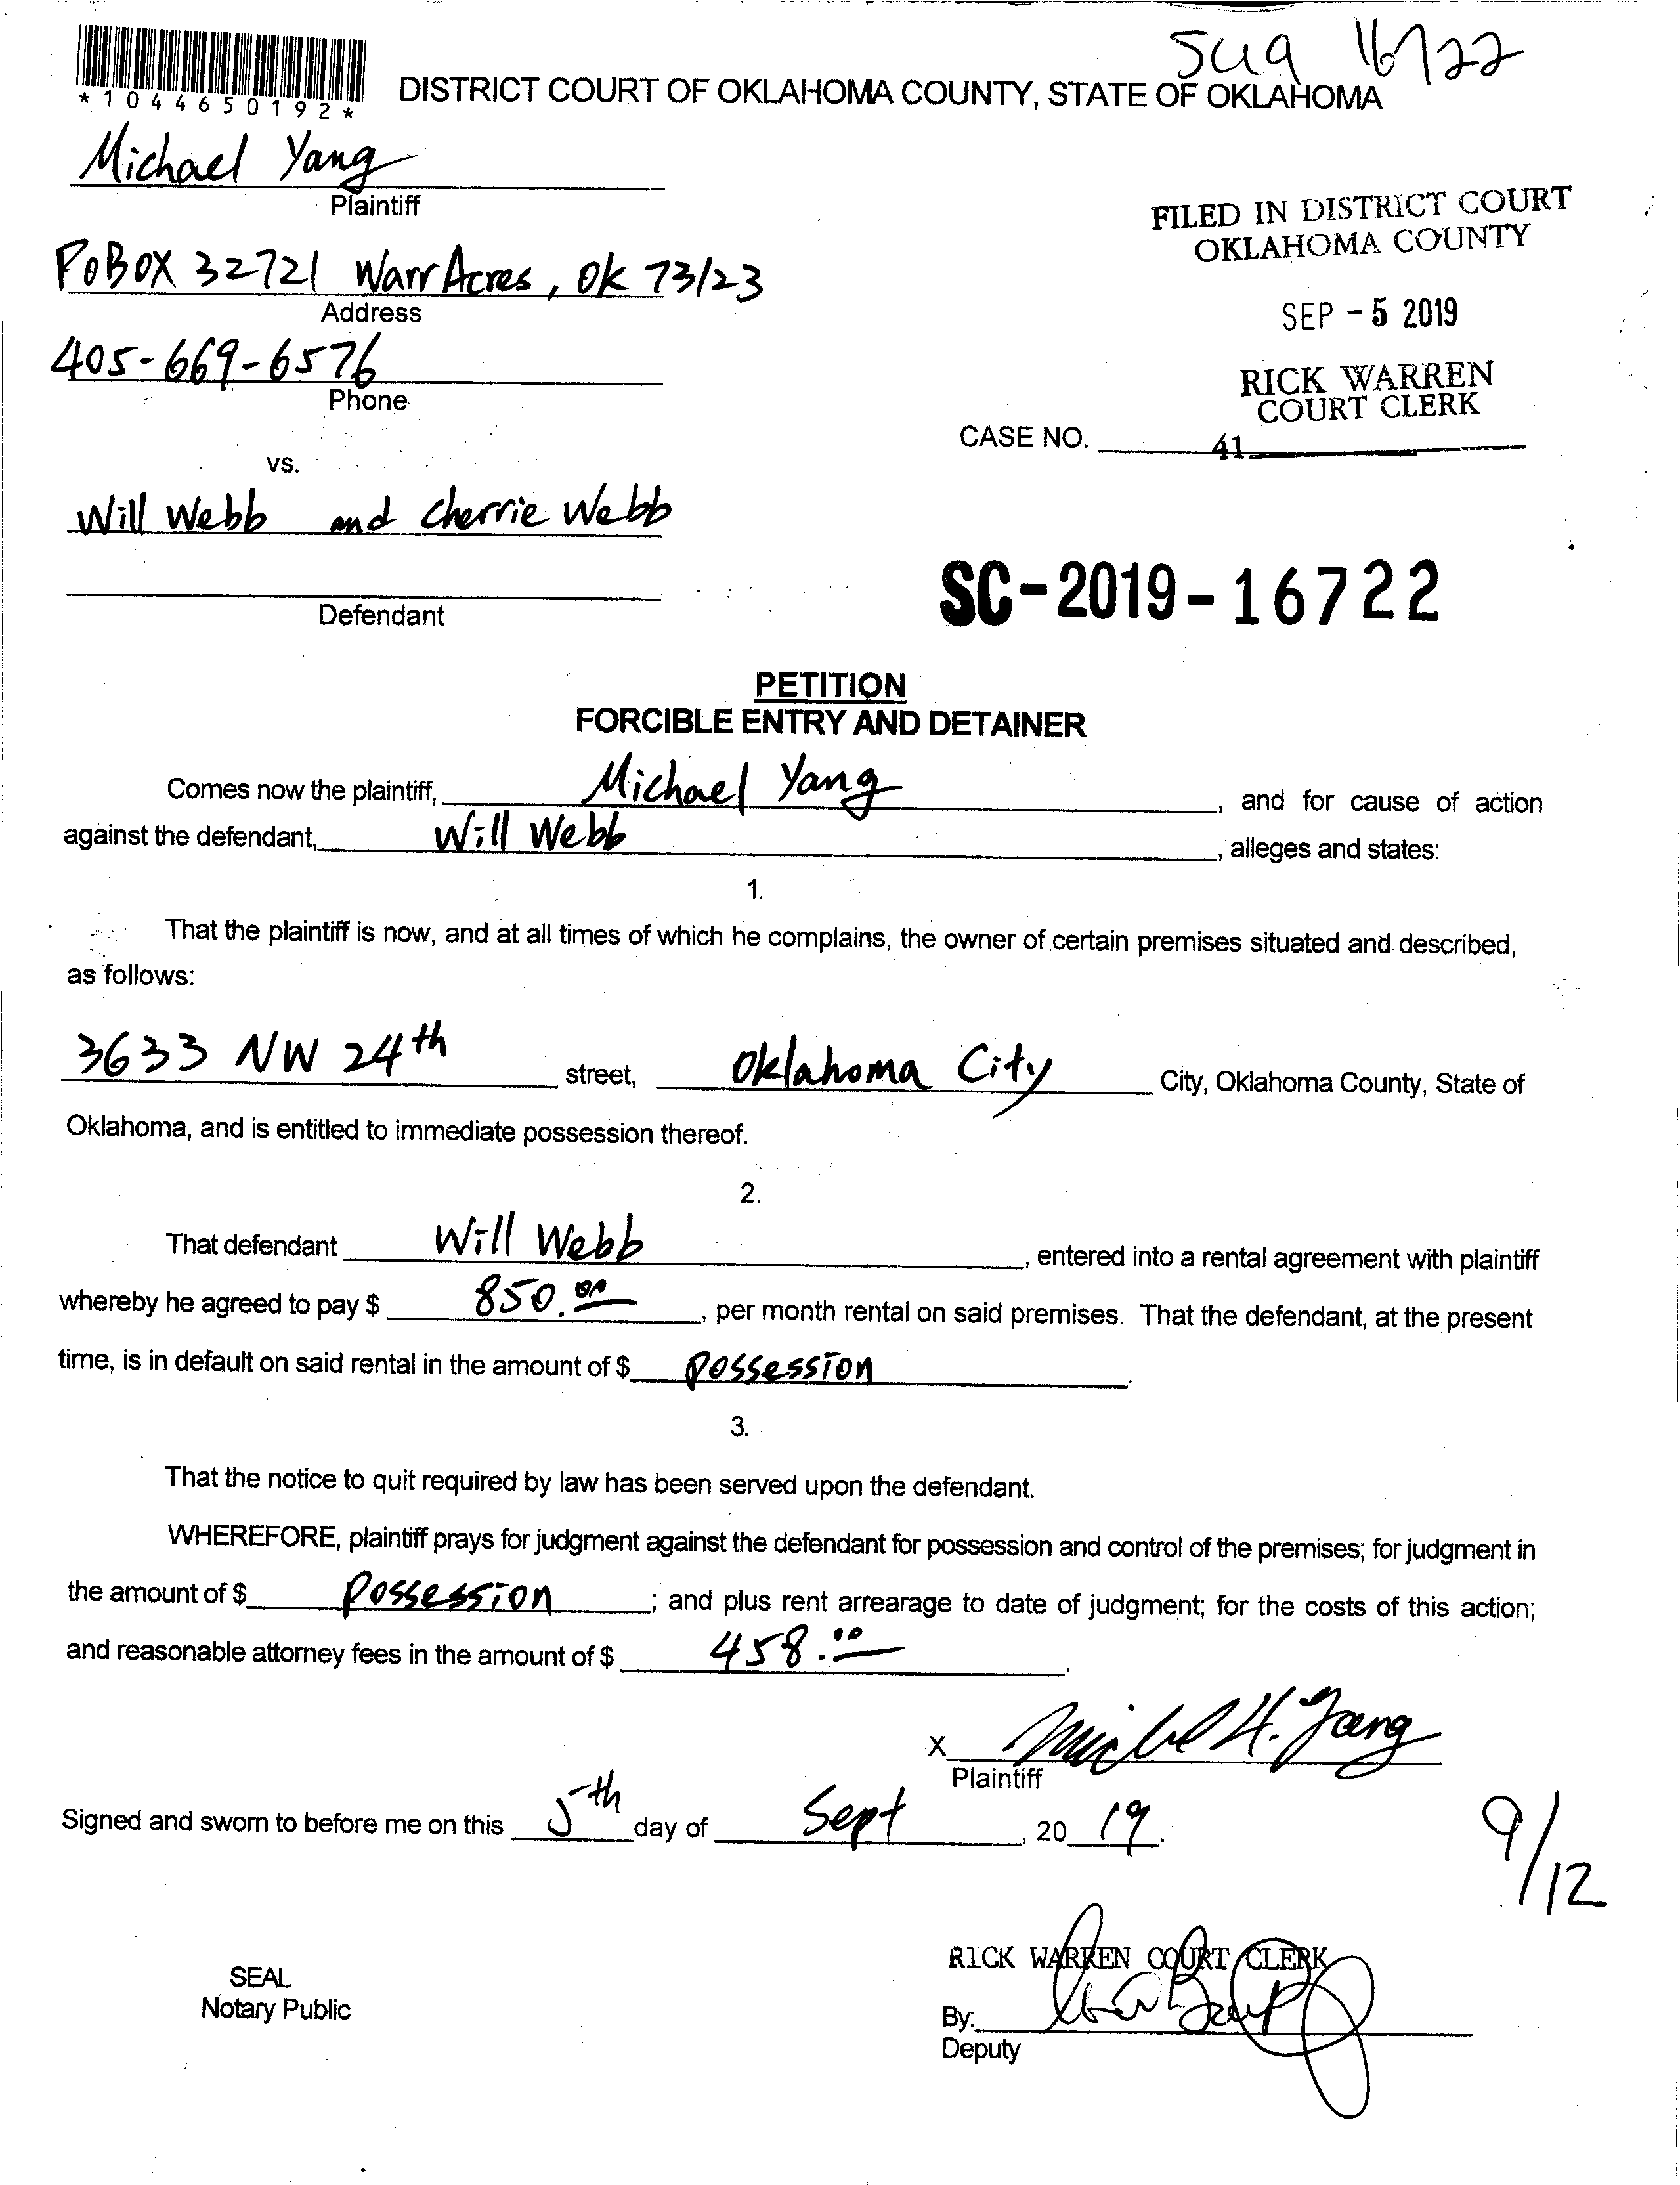 16722
*1044650192*
DISTRICT COURT OF OKLAHOMA COUNTY, STATE OF OKLAHOMA
Michael Yang
Plaintiff
FILED IN DISTRICT COURT
OKLAHOMA COUNTY
PO BOX 32721 Warr Acres, OK 73123
Address
SEP - 5 2019
405-669-6576
Phone
RICK WARREN
COURT CLERK
CASE NO. 41
vs.
Will Webb and Cherrie Webb
Defendant
SC-2019-16722
PETITION
FORCIBLE ENTRY AND DETAINER
Comes now the plaintiff, Michael Yang, and for cause of action
against the defendant, Will Webb, alleges and states:
1.
That the plaintiff is now, and at all times of which he complains, the owner of certain premises situated and described,
as follows:
3633 NW 24th street, Oklahoma City City, Oklahoma County, State of
Oklahoma, and is entitled to immediate possession thereof.
2.
That defendant Will Webb, entered into a rental agreement with plaintiff
whereby he agreed to pay $ 850.00, per month rental on said premises. That the defendant, at the present
time, is in default on said rental in the amount of $ Possession.
3.
That the notice to quit required by law has been served upon the defendant.
WHEREFORE, plaintiff prays for judgment against the defendant for possession and control of the premises; for judgment in
the amount of $ Possession; and plus rent arrearage to date of judgment; for the costs of this action;
and reasonable attorney fees in the amount of $ 458.00.
X Michael H. Yang
Plaintiff
Signed and sworn to before me on this 5th day of Sept, 2019.
9/12
RICK WARREN COURT CLERK
SEAL
Notary Public
By:
Deputy